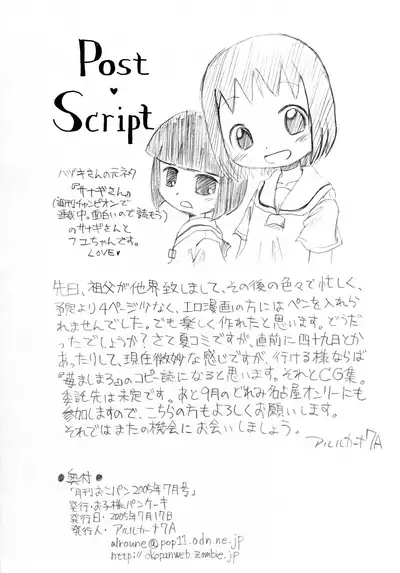 Post
♥
Script
ハヅキさんの元ネタ
『サナギさん』
(週刊チャンピオンで
連載中。面白いので読もう)
のサナギさんと
フユちゃんです。
LOVE♥
先日、祖父が他界致しまして、その後の色々で忙しく、
予定より4ページ少なく、エロ漫画の方にはペンを入れら
れませんでした。でも楽しく作れたと思います。どうだ
ったでしょうか?さて夏コミですが、直前に四十九日とか
あったりして、現在微妙な感じですが、行ける様ならば
『苺ましまろ』のコピー誌になると思います。それとCG集。
委託先は未定です。あと9月のどれみ名古屋オンリーにも
参加しますので、こちらの方もよろしくお願いします。
それではまたの機会にお会いしましょう。
アルルカーナ7A
●奥付●
「月刊おこパン2005年7月号」
発行・お子様パンケーキ
発行日・2005年7月17日
発行人・アルルカーナ7A
alroune@pop11.odn.ne.jp
http://okopanweb.zombie.jp